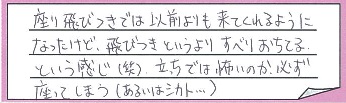 座り飛びつきでは以前よりも来てくれるように
なったけど、飛びつきというよりすべりおちてる
という感じ(笑)。立ちでは怖いのか必ず
座ってしまう(あるいはシカト…)